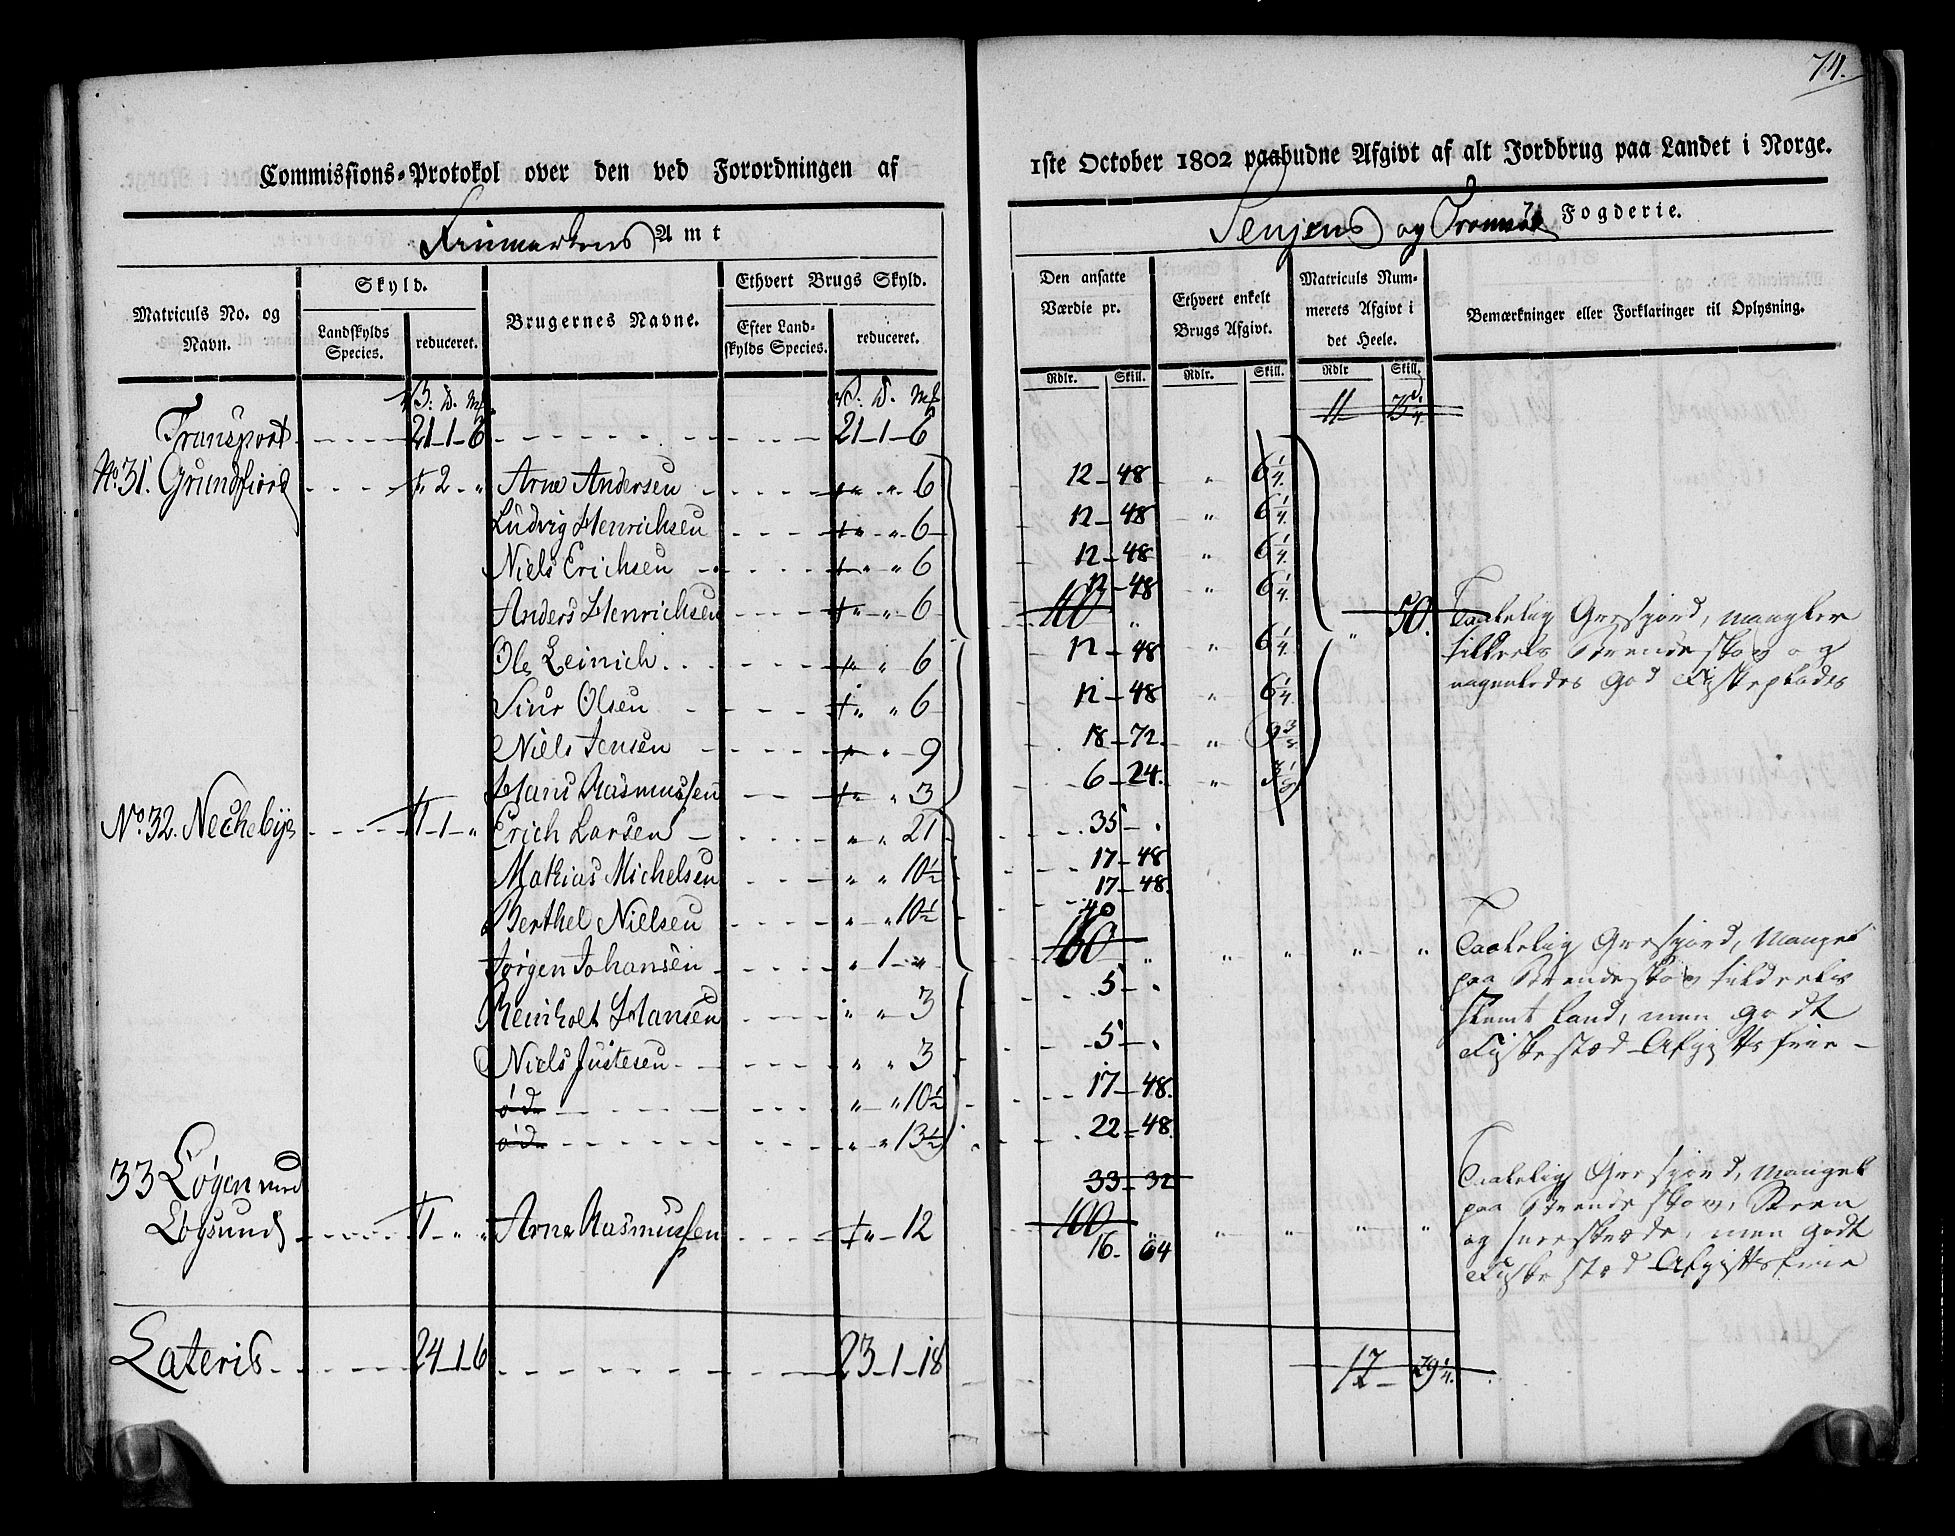 74.
Commissions-Protokol over den ved Forordningen af 1ste October 1802 paabudne Afgivt af alt Jordbrug paa Landet i Norge.
Finmarkens Amt
Senjens og Tromsøe Fogderie.
Matriculs No. og Navn.
Skyld.
Landskylds Species.
reduceret.
Brugernes Navne.
Ethvert Brugs Skyld.
Efter Landskylds Species.
reduceret.
Den ansatte Værdie pr.
Ethvert enkelt Brugs Afgivt.
Matriculs Nummerets Afgivt i det Heele.
Bemærkninger eller Forklaringer til Oplysning.
Rdlr. Skill. Rdlr. Skill. Rdlr Skill.
V. D. Mk. V. D. Mk.
Transport 21-1-6 21-1-6 11
No. 31. Grundfiord 1 2 " Arne Andersen " " 6 12-48 " 6 1/4
Ludvig Henrichsen " " 6 12-48 " 6 1/4
Niels Erichsen " " 6 12-48 " 6 1/4
Anders Henrichsen " " 6 12-48 " 6 1/4
100 " " 50.
Ole Leinich " " 6 12-48 " 6 1/4
Siur Olsen " " 6 12-48 " 6 1/4
Niels Jensen " " 9 18-72 " 9 3/8
Hans Rasmussen " " 3 6-24. " 3 1/8
Taalelig Græsjord, mangler
tildeels Brændeskov og
nogenledes god Fiskeplads
No. 32. Nechebye 1-1-" Erich Larsen " " 21 35-"
Mathias Michelsen " " 10 1/2 17-48
Berthel Nielsen " " 10 1/2 17-48.
Jørgen Johansen " 1 " 40
160 " " " " "
Reinholt Hansen " " 3 5-"
Niels Justesen " " 3 5-"
øde " " 10 1/2 17-48.
øde " " 13 1/2 22-48.
Taalelig Græsjord, Mangel
paa Brændeskov tildeels
slemt Land, men godt
Fiskestæd Afgiftsfrie -
33 Løgen med
Løgsund 1 " " Arne Rasmussen " 12 33-32
100 " " " " "
16. 64
Taalelig Græsjord, Mangel
paa Brændeskov,
og men godt
Fiskestæd Afgiftsfrie
Lateris 24-1-6 23-1-18 12 29 1/4.